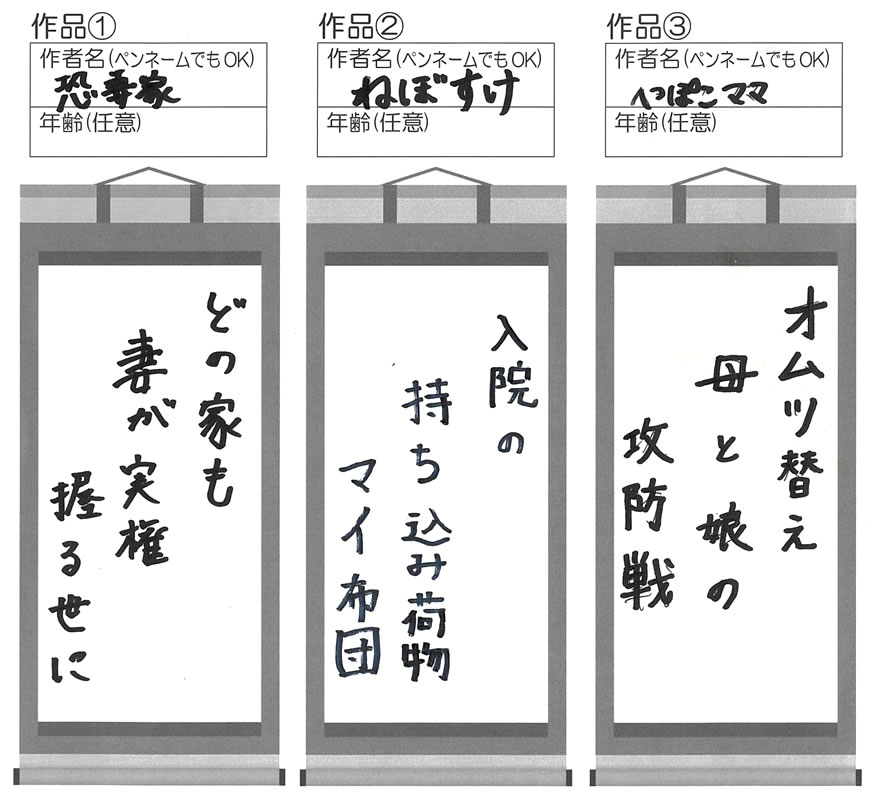 作品①
作者名(ペンネームでもOK)
恐妻家
年齢(任意)
どの家も
妻が実権
握る世に
作品②
作者名(ペンネームでもOK)
ねぼすけ
年齢(任意)
入院の
持ち込み荷物
マイ布団
作品③
作者名(ペンネームでもOK)
へっぽこママ
年齢(任意)
オムツ替え
母と娘の
攻防戦